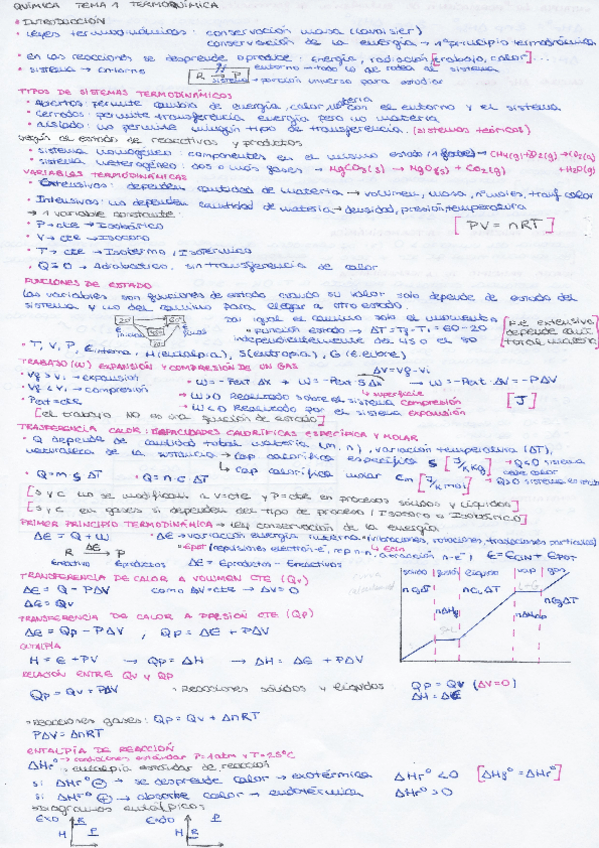 QUÍMICA TEMA 1 TERMOQUÍMICA
* INTRODUCCIÓN
• Leyes termodinámicas: conservación masa (Lavoisier)
conservación de la energía → 1º principio termodinámica
• en las reacciones se desprende o produce: energía, radiación [trabajo, calor]...
• sistema → entorno R → P entorno → todo lo que rodea al sistema
sistema → porción universo para estudiar
TIPOS DE SISTEMAS TERMODINÁMICOS
• Abiertos: permite cambio de energía, calor, materia con el entorno y el sistema
• cerrados: permite transferencia energía pero no materia
• aislado: no permite ningún tipo de transferencia. (sistemas teóricos)
según el estado de reactivos y productos
• sistema homogéneo: componentes en el mismo estado → CH4(g) + O2(g) → CO2(g) + H2O(g)
• sistema heterogéneo: dos o más fases → MgCO3(s) → MgO(s) + CO2(g)
VARIABLES TERMODINÁMICAS
• Extensivas: dependen cantidad de materia → volumen, masa, nº moles, transf calor
• Intensivas: no dependen cantidad de materia → densidad, presión, temperatura
→ 1 variable constante: [PV = nRT]
• P → cte → Isobárico
• V → cte → Isocoro
• T → cte → Isotermo / Isotérmico
• Q = 0 → Adiabático, sin transferencia de calor
FUNCIONES DE ESTADO
Las variables son funciones de estado cuando su valor solo depende de estado del
sistema y no del camino para llegar a otro estado
Da igual el camino solo el momento
inicial final
• función estado → ΔT = Tf - Ti = 60 - 20
independientemente del 45 o el 80
• T, V, P, E interna, H (entalpía), S (entropía), G (E. libre)
TRABAJO (W) EXPANSIÓN Y COMPRESIÓN DE UN GAS
ΔV = Vf - Vi
• Vf > Vi → expansión • W = -Pext ΔX → W = -Pext · S ΔX → W = -Pext ΔV = -PΔV
• Vf < Vi → compresión superficie
• Pext = cte → W>0 Realizado sobre el sistema Compresión [J]
→ W<0 Realizado por el sistema expansión
[el trabajo NO es una función de estado]
TRASFERENCIA CALOR: CAPACIDADES CALORÍFICAS ESPECÍFICA Y MOLAR
• Q depende de cantidad total materia (m, n), variación temperatura (ΔT),
naturaleza de la sustancia → cap calorífica específica
→ cap calorífica molar
• Q = m S ΔT • Q = n · C · ΔT
→ Q<0 sistema cede calor
[s y c no se modifican a V cte y P cte en procesos sólidos y líquidos]
[s y c en gases si dependen del tipo de proceso / Isocoro o Isobárico]
PRIMER PRINCIPIO TERMODINÁMICA → ley conservación de la energía
ΔE = Q + W • ΔE → variación energía interna (vibraciones, rotaciones, traslaciones partículas) → Ecin
• Epot E = Ecin + Epot
R →(ΔE) P
Ereactivo Eproductos ΔE = Eproductos - Ereactivos
TRANSFERENCIA DE CALOR A VOLUMEN CTE (QV)
ΔE = Q - PΔV como ΔV = cte → ΔV = 0
ΔE = QV
TRANSFERENCIA DE CALOR A PRESIÓN CTE (QP)
ΔE = QP - PΔV , QP = ΔE + PΔV
ENTALPÍA
H = E + PV → QP = ΔH → ΔH = ΔE + PΔV
sólido fusión líquido vap gas
RELACIÓN ENTRE QV y QP
QP = QV = PΔV • Reacciones sólidos y líquidos QP = QV (ΔV=0)
ΔH = ΔE
• Reacciones gases: QP = QV + ΔnRT
PΔV = ΔnRT
ENTALPÍA DE REACCIÓN
ΔHr° → condiciones estándar P=1atm y T=25°C
→ entalpía estándar de reacción
si ΔHr° ⊖ → se desprende calor → exotérmica ΔHr° < 0 [ΔHf° = ΔHr°]
si ΔHr° ⊕ → absorbe calor → endotérmica ΔHr° > 0
diagramas entálpicos
H R P H P R